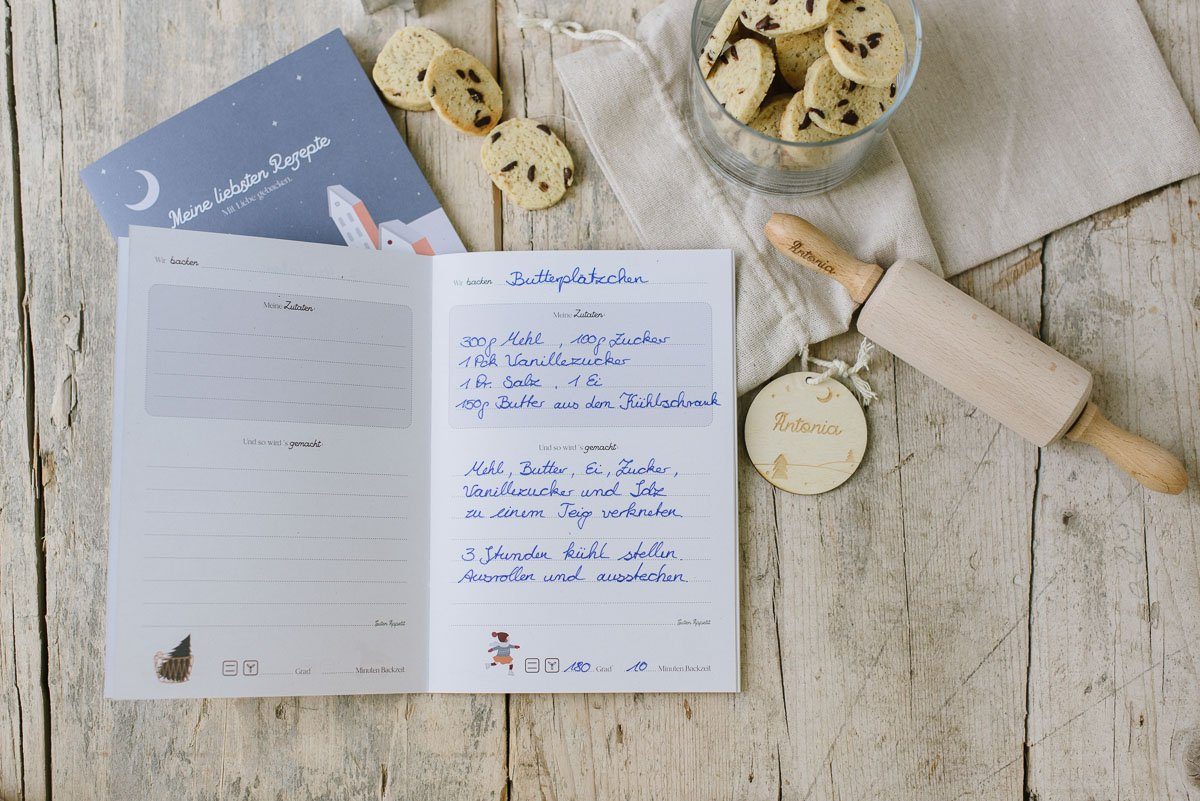 Meine liebsten Rezepte
Mit Liebe gebacken.
Wir backen
Meine Zutaten:
Und so wird's gemacht:
Guten Appetit
Grad Minuten Backzeit
Wir backen Butterplätzchen
Meine Zutaten:
300g Mehl, 100g Zucker
1 Pck Vanillezucker
1 Pr. Salz, 1 Ei
150g Butter aus dem Kühlschrank
Und so wird's gemacht:
Mehl, Butter, Ei, Zucker,
Vanillezucker und Salz
zu einem Teig verkneten.
3 Stunden kühl stellen.
Ausrollen und ausstechen.
Guten Appetit
180 Grad 10 Minuten Backzeit
Antonia
Antonia